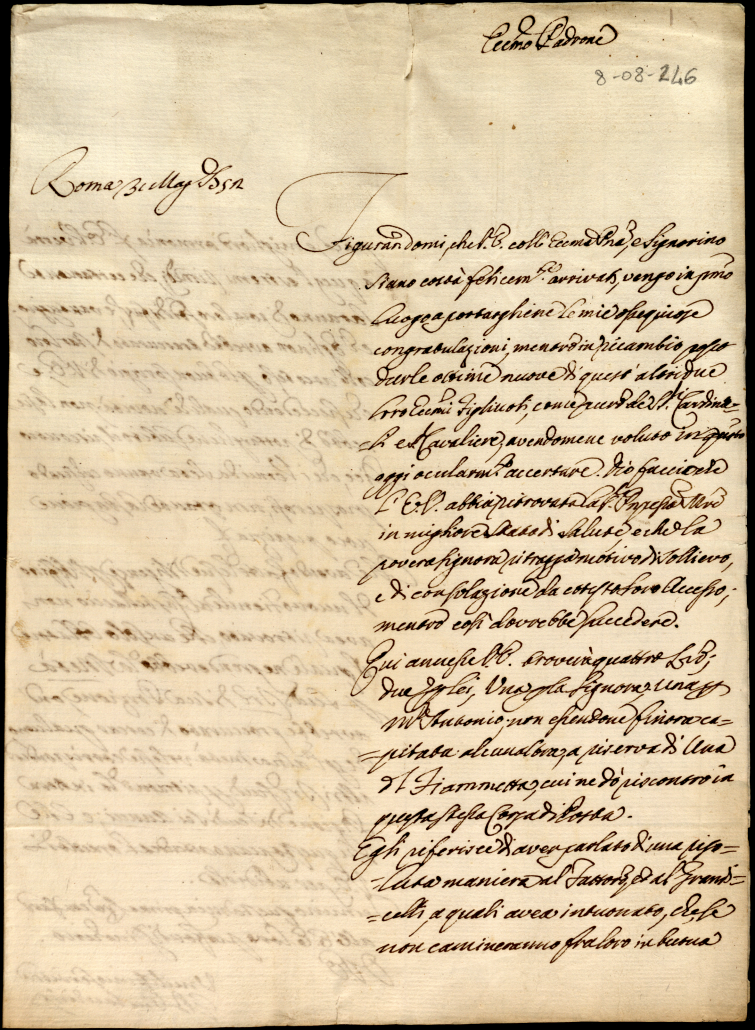 Eccmo Padrone
8-08-246
Roma 3 Mag
Figurandomi, che V.E. colla Eccma e Signorino
siano costà felicemte arrivati, vengo in pmo
luogo a portarghiene le mie ossequiose
congratulazioni, mentre in ricambio posso
darle ottime nuove di quest' altri due
loro Eccmi Figliuoli, come pure del Sr Cardina=
=le e Cavaliere, avendomene voluto in questo
oggi ocularmte accertare. Dio faccia che
l'E.V. abbia ritrovata la
in migliore stato di salute e che la
povera signora ritragga motivo di sollievo,
e di consolazione da cotesto loro accesso,
mentre così dovrebbe succedere.
Qui annesse V.E. troverà quattro
due Una pla Signora, una p
Mr Antonio, non essendone finora ca=
=pitata alcun'altra, a riserva di una
di Fiammetta, cui ne dò riscontro in
questa stessa Corsa di Posta.
Egli riferisce di aver parlato di una riso=
=luta maniera al Fattore, ed al Grandi=
=celli, a quali avea intuonato, che se
non camineranno fra loro in buona